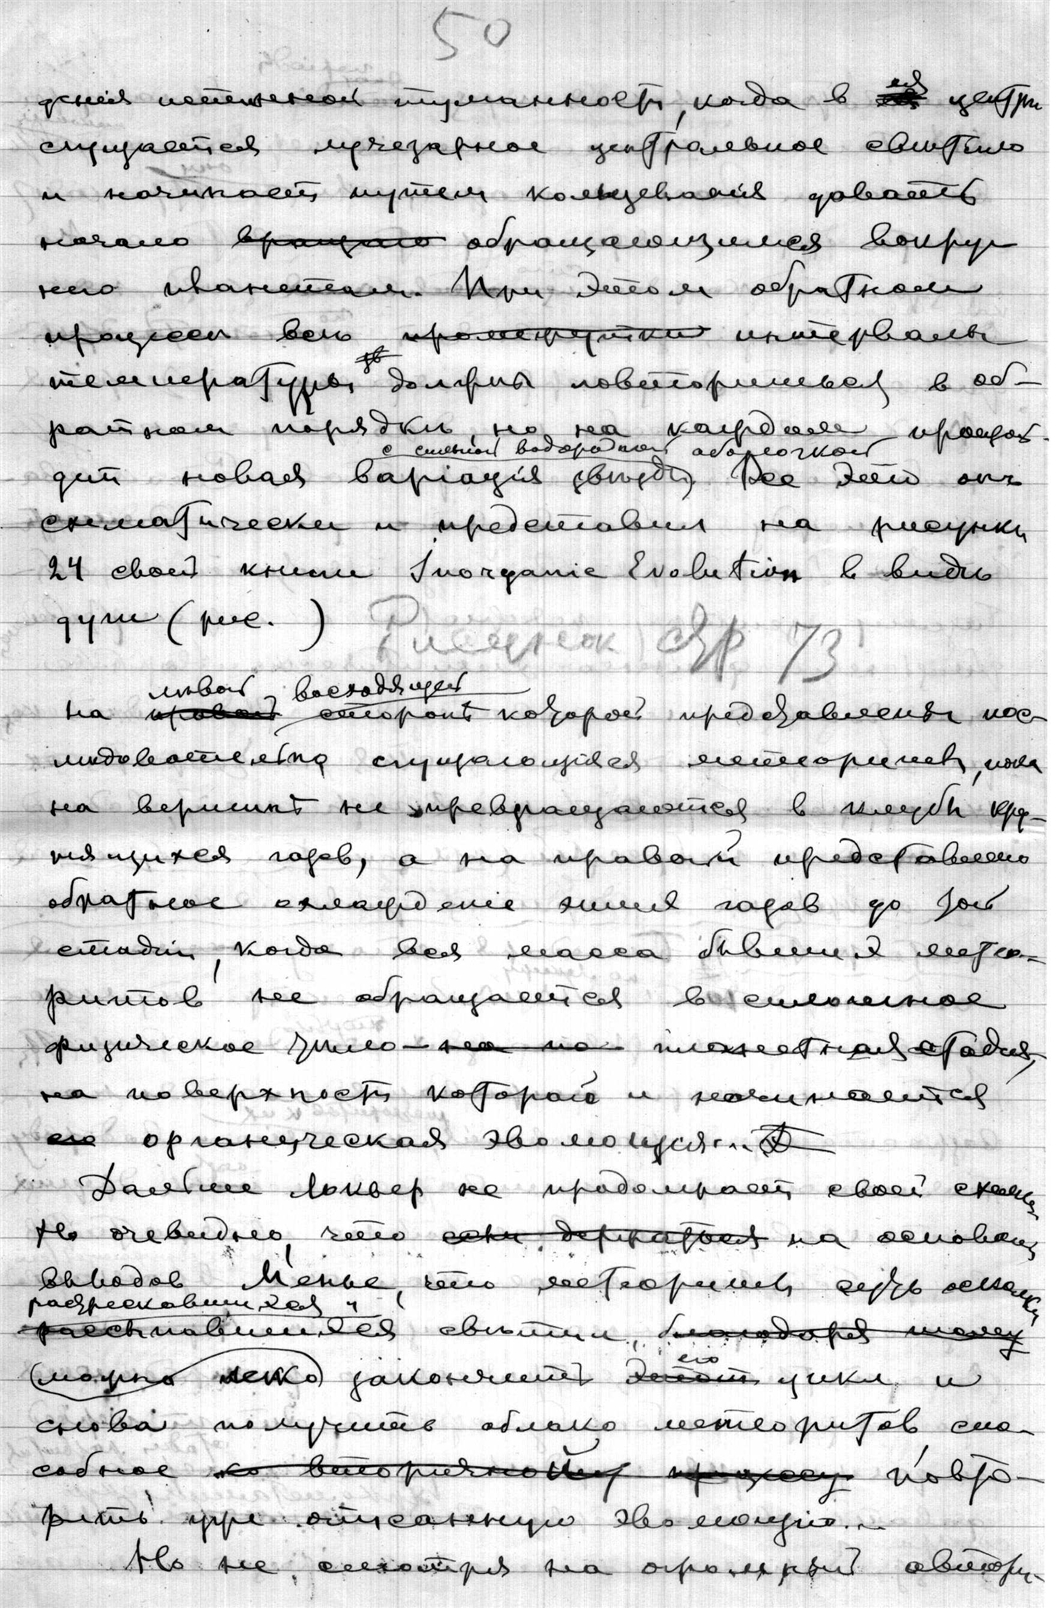 50
дения истинной туманности, когда в ея центре
сгущается лучезарное центральное светило
и начинает путем кольцевания давать
начало вращаю обращающимся вокруг
него планетам. При этом обратном
процессе все промежутки интервалы
температуры должны повториться в об-
ратном порядке, но на каждом происхо-
с сильной водородной оболочкой
дит новая вариация звезды. Все это он
схематически и представил на рисунке
24 своей книги Inorganic Evolution в виде
дуги (рис. )
Рисунок стр 73
левой восходящей
на правой стороне которой представлены пос-
ледовательно сгущающиеся метеориты, пока
на вершине не превращаются в клубы кру-
тящихся газов, а на правой представлено
обратное охлаждение этих газов до той
стадии, когда вся масса бывших метео-
ритов не обращается в сплошное
физическое тело — на по планетная стадия,
на поверхности которой и начинается
ея органическая эволюция...
Дальше Локьер не продолжает своей схемы
Но очевидно, что если держаться на основании
выводов Менье, что метеориты суть осколки
растрескавшихся и
рассыпавшихся светил, благодаря чему
(можно легко) закончить этот его цикл и
снова получить облако метеоритов спо-
собное ко вторичному процессу повто-
рить уже описанную эволюцию...
Но не смотря на огромный автори-